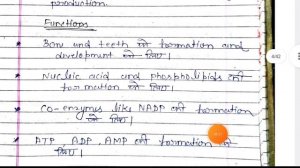 production.
Functions
* Bon und teeth के formation and
development के लिए।
* Nucleic acid and phospholipids की
formation के लिए।
* CO-enzymes like NADP की formation
के लिए।
* ATP ADP, AMP की formation के
लिए।